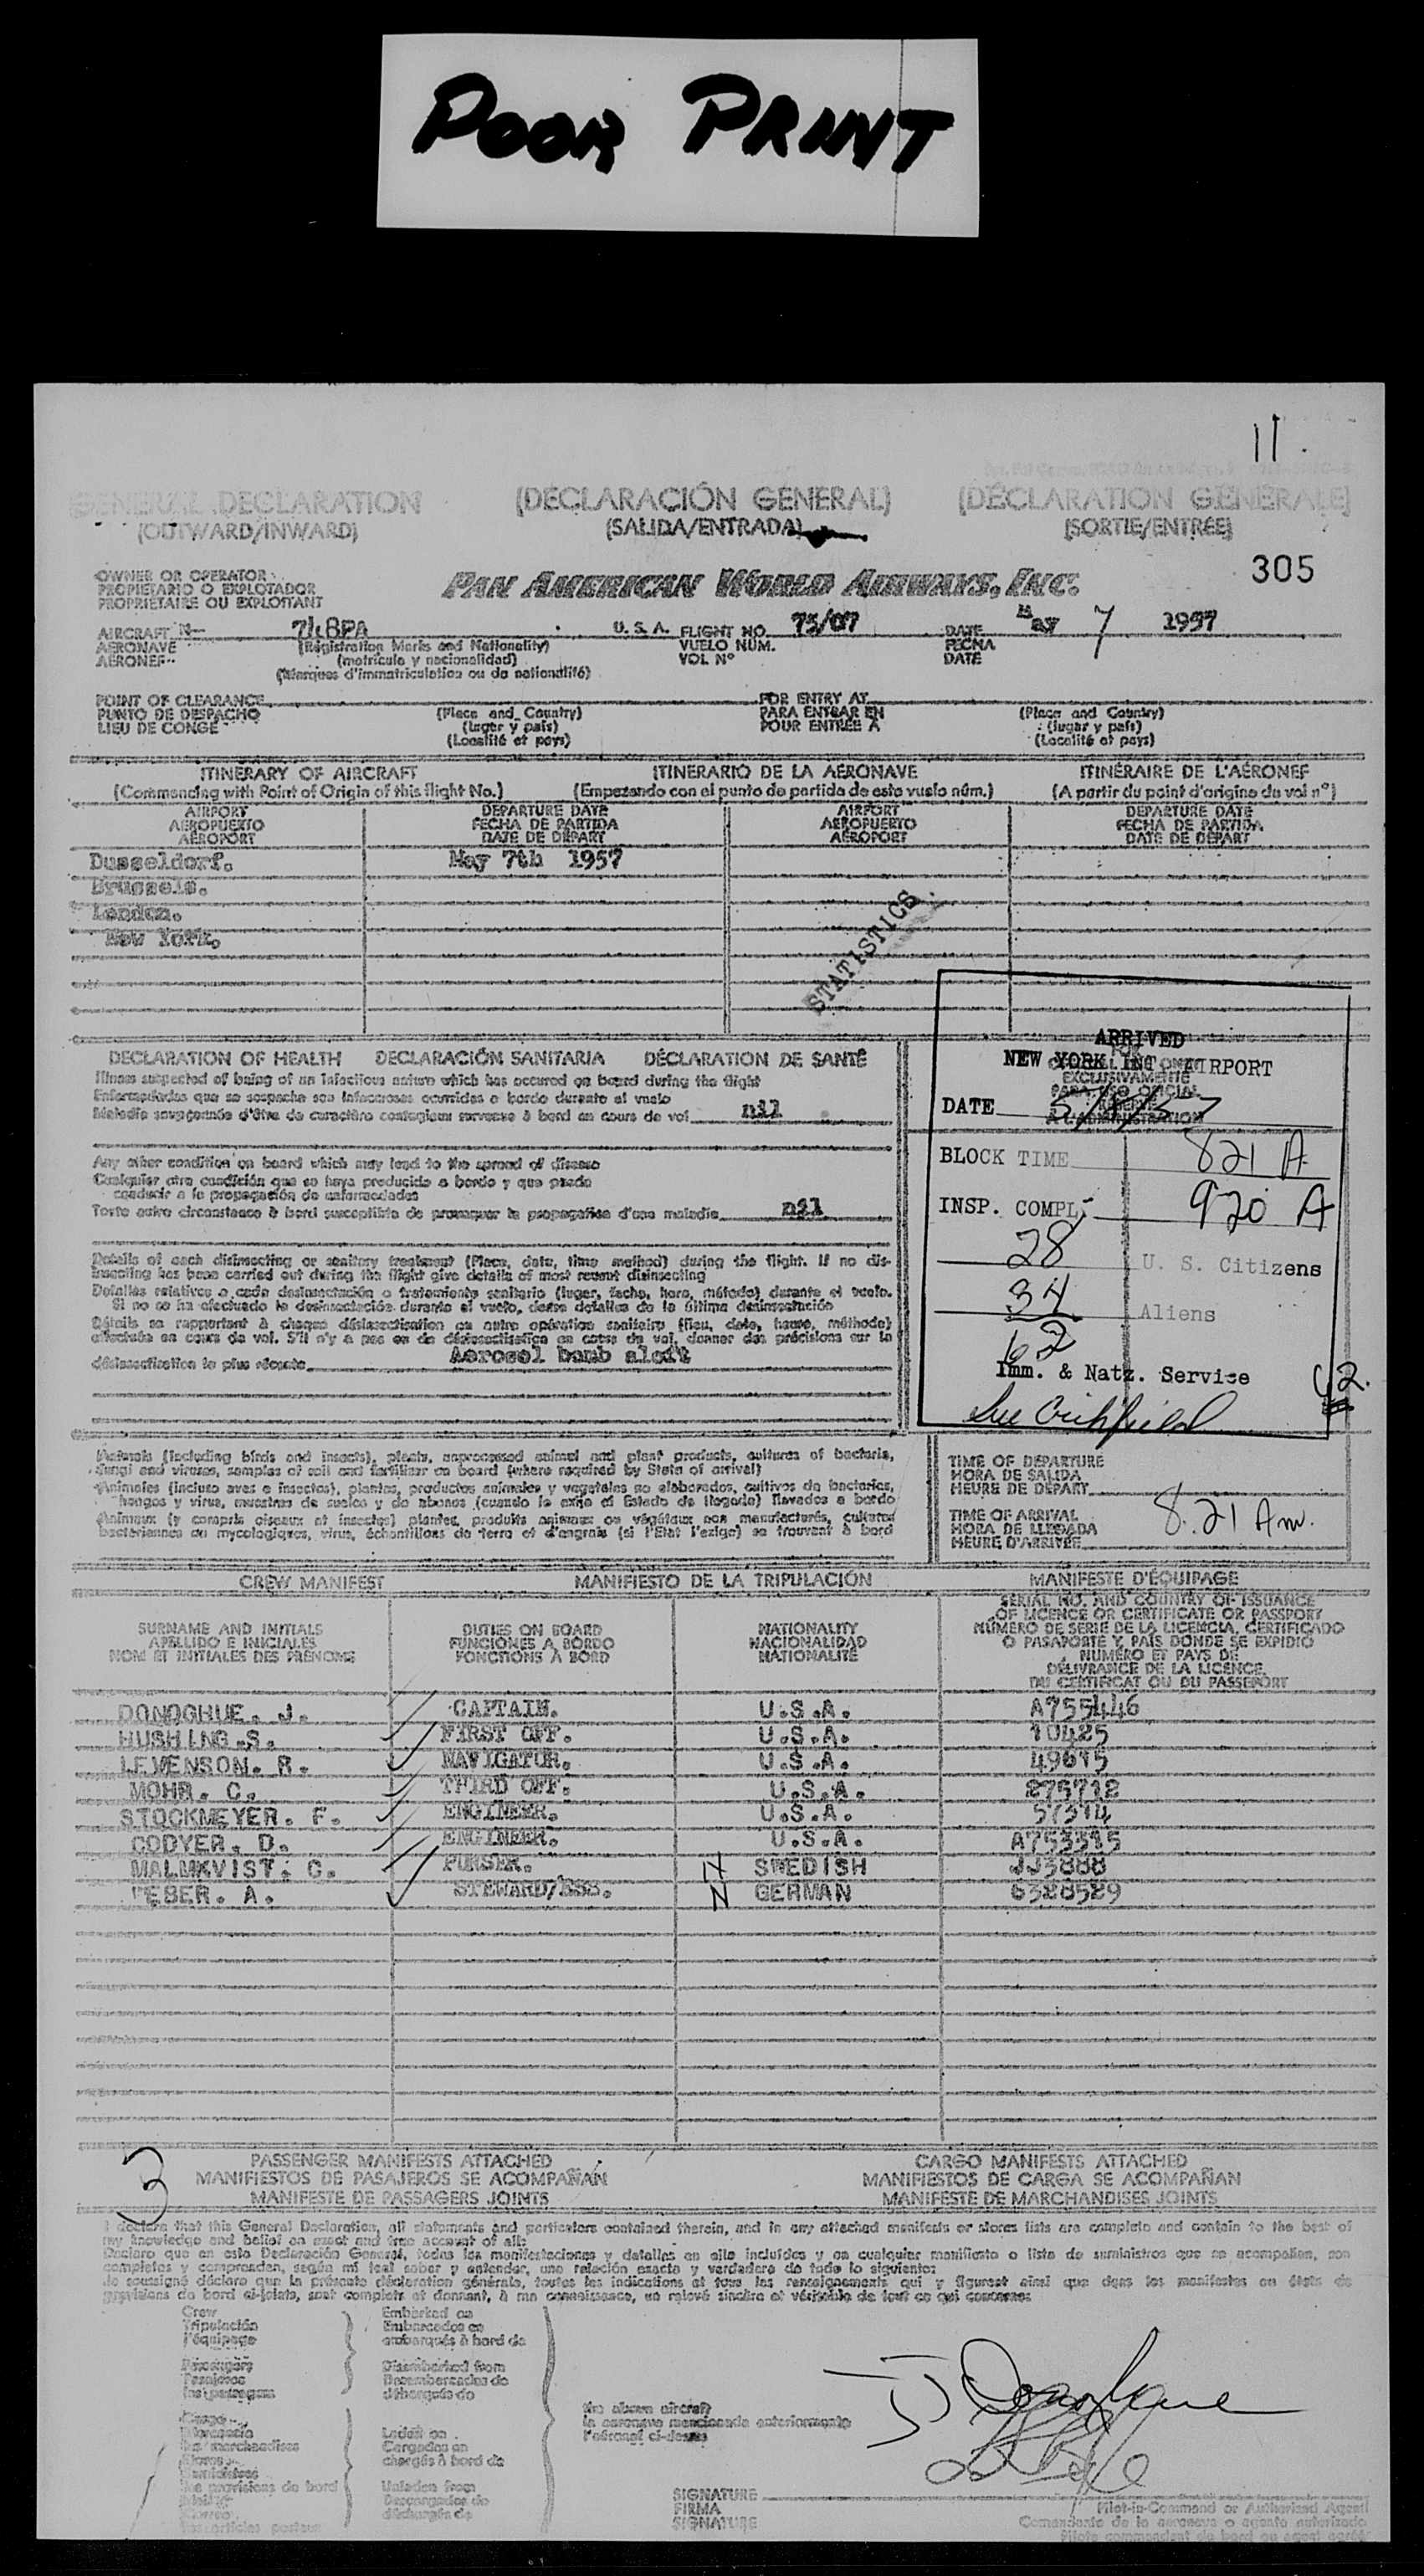 POOR PRINT
11.
GENERAL DECLARATION (DECLARACIÓN GENERAL) (DÉCLARATION GÉNÉRALE)
(OUTWARD/INWARD) (SALIDA/ENTRADA) (SORTIE/ENTRÉE)
305
OWNER OR OPERATOR
PROPIETARIO O EXPLOTADOR
PROPRIETAIRE OU EXPLOITANT
PAN AMERICAN WORLD AIRWAYS, INC.
AIRCRAFT N- 748PA U. S. A. FLIGHT NO. 75/07 DATE May 7 1957
AERONAVE (Registration Marks and Nationality) VUELO NUM. FECHA
AÉRONEF (matrícula y nacionalidad) VOL Nº DATE
(Marques d'immatriculation ou de nationalité)
POINT OF CLEARANCE FOR ENTRY AT
PUNTO DE DESPACHO (Place and Country) PARA ENTRAR EN (Place and Country)
LIEU DE CONGÉ (lugar y país) POUR ENTRÉE À (lugar y país)
(Localité et pays) (Localité et pays)
ITINERARY OF AIRCRAFT ITINERARIO DE LA AERONAVE ITINÉRAIRE DE L'AÉRONEF
(Commencing with Point of Origin of this flight No.) (Empezando con el punto de partida de este vuelo núm.) (A partir du point d'origine du vol nº)
AIRPORT DEPARTURE DATE AIRPORT DEPARTURE DATE
AEROPUERTO FECHA DE PARTIDA AEROPUERTO FECHA DE PARTIDA
AÉROPORT DATE DE DÉPART AÉROPORT DATE DE DÉPART
Dusseldorf. May 7th 1957
Brussels.
London.
New York.
STATISTICS
DECLARATION OF HEALTH DECLARACIÓN SANITARIA DÉCLARATION DE SANTÉ
Illness suspected of being of an infectious nature which has occured on board during the flight
Enfermedades que se sospecha son infecciosas ocurridas a bordo durante el vuelo
Maladie soupçonnée d'être de caractère contagieux survenue à bord au cours de vol nil
Any other condition on board which may lead to the spread of disease
Cualquier otra condición que se haya producido a bordo y que pueda
conducir a la propagación de enfermedades
Toute autre circonstance à bord susceptible de provoquer la propagation d'une maladie nil
Details of each disinsecting or sanitary treatment (Place, date, time method) during the flight. If no dis-
insecting has been carried out during the flight give details of most recent disinsecting
Detalles relativos a cada desinsectación o tratamiento sanitario (lugar, fecha, hora, método) durante el vuelo.
Si no se ha efectuado la desinsectación durante el vuelo, dense detalles de la última desinsectación
Détails se rapportant à chaque désinsectisation ou autre opération sanitaire (lieu, date, heure, méthode)
effectuée en cours de vol. S'il n'y a pas eu de désinsectisation en cours de vol, donner des précisions sur la
désinsectisation la plus récente Aerosol bomb aloft
ARRIVED
NEW YORK INT AIRPORT
EXCLUSIVAMENTE
PARA USO OFICIAL
DATE 5/8/57
BLOCK TIME 821 A
INSP. COMPL. 920 A
28 U. S. Citizens
34 Aliens
62
Imm. & Natz. Service
62.
Animals (including birds and insects), plants, unprocessed animal and plant products, cultures of bacteria,
fungi and viruses, samples of soil and fertilizer on board (where required by State of arrival)
Animales (incluso aves e insectos), plantas, productos animales y vegetales no elaborados, cultivos de bacterias,
hongos y virus, muestras de suelos y de abonos (cuando lo exija el Estado de llegada) llevados a bordo
Animaux (y compris oiseaux et insectes) plantes, produits animaux ou végétaux non manufacturés, cultures
bactériennes ou mycologiques, virus, échantillons de terre et d'engrais (si l'État l'exige) se trouvant à bord
TIME OF DEPARTURE
HORA DE SALIDA
HEURE DE DÉPART
TIME OF ARRIVAL
HORA DE LLEGADA
HEURE D'ARRIVÉE
8.21 Am.
CREW MANIFEST MANIFIESTO DE LA TRIPULACIÓN MANIFESTE D'ÉQUIPAGE
SURNAME AND INITIALS DUTIES ON BOARD NATIONALITY
APELLIDO E INICIALES FUNCIONES A BORDO NACIONALIDAD
NOM ET INITIALES DES PRÉNOMS FONCTIONS À BORD NATIONALITÉ
SERIAL NO. AND COUNTRY OF ISSUANCE
OF LICENCE OR CERTIFICATE OR PASSPORT
NÚMERO DE SERIE DE LA LICENCIA, CERTIFICADO
O PASAPORTE Y PAÍS DONDE SE EXPIDIÓ
NUMÉRO ET PAYS DE
DÉLIVRANCE DE LA LICENCE,
DU CERTIFICAT OU DU PASSEPORT
DONOGHUE. J. CAPTAIN. U.S.A. A755446
HUSHING.S. FIRST OFF. U.S.A. 10425
LEVENSON. R. NAVIGATOR. U.S.A. 49615
MOHR. C. THIRD OFF. U.S.A. 275712
STOCKMEYER. F. ENGINEER. U.S.A. 57314
CODYER. D. ENGINEER. U.S.A. A753515
MALMKVIST. C. PURSER. SWEDISH JJ3888
WEBER. A. STEWARD/ESS. N GERMAN 6328529
3
PASSENGER MANIFESTS ATTACHED CARGO MANIFESTS ATTACHED
MANIFIESTOS DE PASAJEROS SE ACOMPAÑAN MANIFIESTOS DE CARGA SE ACOMPAÑAN
MANIFESTE DE PASSAGERS JOINTS MANIFESTE DE MARCHANDISES JOINTS
I declare that this General Declaration, all statements and particulars contained therein, and in any attached manifests or stores lists are complete and contain to the best of
my knowledge and belief an exact and true account of all:
Declaro que en esta Declaración General, todas las manifestaciones y detalles en ella incluídos y en cualquier manifiesto o lista de suministros que se acompañen, son
completos y comprenden, según mi leal saber y entender, una relación exacta y verdadera de todo lo siguiente:
Je soussigné déclare que la présente déclaration générale, toutes les indications et tous les renseignements qui y figurent ainsi que dans les manifestes ou états de
provisions de bord ci-joints, sont complets et donnent, à ma connaissance, un relevé sincère et véritable de tout ce qui concerne:
Crew Embarked on
Tripulación Embarcados en
l'équipage embarqués à bord de
Passengers Disembarked from
Pasajeros Desembarcados de
les passagers débarqués de
the above aircraft
la aeronave mencionada anteriormente
l'aéronef ci-dessus
Cargo
Mercancía Laden on
les marchandises Cargados en
Stores chargés à bord de
Suministros
les provisions de bord Unladen from
Descargados de
Correo déchargés de
J Donoghue
SIGNATURE
FIRMA
SIGNATURE
Pilot-in-Command or Authorized Agent
Comandante de la aeronave o agente autorizado
Pilote commandant de bord ou agent agréé